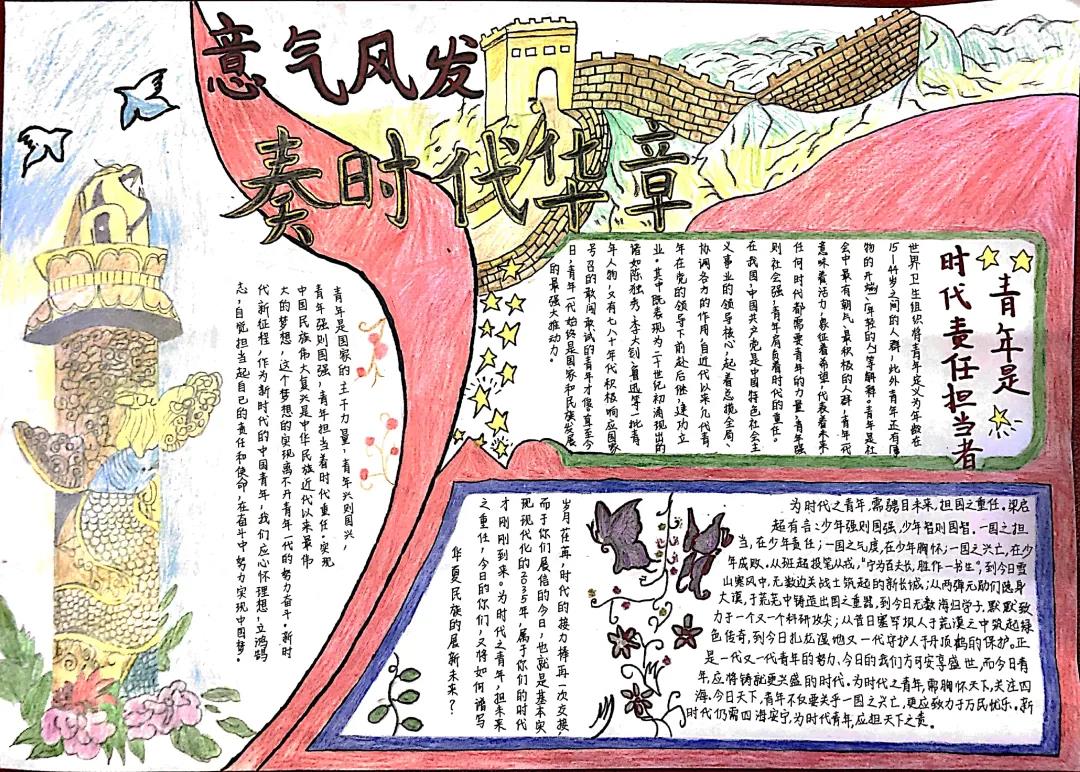 意气风发
奏时代华章
青年是
时代责任担当者
世界卫生组织将青年定义为年龄在
15—44岁之间的人群，此外青年还有事
物的开端、年轻的人等解释。青年是社
会中最有朝气、最积极的人群，青年代
意味着活力，象征着希望，代表着未来。
任何时代都需要青年的力量，青年强
则社会强，青年肩负着时代的重任。
在我国，中国共产党是中国特色社会主
义事业的领导核心，起着总揽全局、
协调各方的作用，自近代以来几代青
年在党的领导下前赴后继，建功立
业。其中既表现为二十世纪初涌现出的
诸如陈独秀、李大钊、鲁迅等一批青
年人物，又有七八十年代积极响应国家
号召的敢闯敢试的青年才俊，直至今
日，青年一代始终是国家和民族发展
的最强大推动力。
青年是国家的主干力量，青年兴则国兴，
青年强则国强，青年担当着时代重任。实现
中国民族伟大复兴是中华民族近代以来最伟
大的梦想，这个梦想的实现离不开青年一代的努力奋斗。新时
代新征程，作为新时代的中国青年，我们应心怀理想，立鸿鹄
志，自觉担当起自己的责任和使命，在奋斗中努力实现中国梦。
为时代之青年，需骋目未来，担国之重任。梁启
超有言：少年强则国强，少年智则国智。一国之担
当，在少年责任；一国之气度，在少年胸怀；一国之兴亡，在少
年成败。从班超投笔从戎，“宁为百夫长，胜作一书生”，到今日雪
山寒风中，无数边关战士筑起的新长城；从两弹元勋们隐身
大漠，于荒芜中铸造出国之重器，到今日无数海归学子，默默致
力于一个又一个科研攻尖；从昔日塞罕坝人于荒漠之中筑起绿
色传奇，到今日扎龙湿地又一代守护人于丹顶鹤的保护。正
是一代又一代青年的努力，今日的我们方可安享盛世，而今日青
年，应将铸就更兴盛的时代。为时代之青年，需胸怀天下，关注四
海。今日天下，青年不仅要关乎一国之兴亡，更应致力于万民忧乐。新
时代仍需四海安宁，为时代青年，应担天下之责。
岁月荏苒，时代的接力棒再一次交接
而于你们展信的今日，也就是基本实
现现代化的2035年，属于你们的时代
才刚刚到来。为时代之青年，担未来
之重任，今日的你们，又将如何谱写
华夏民族的展新未来？